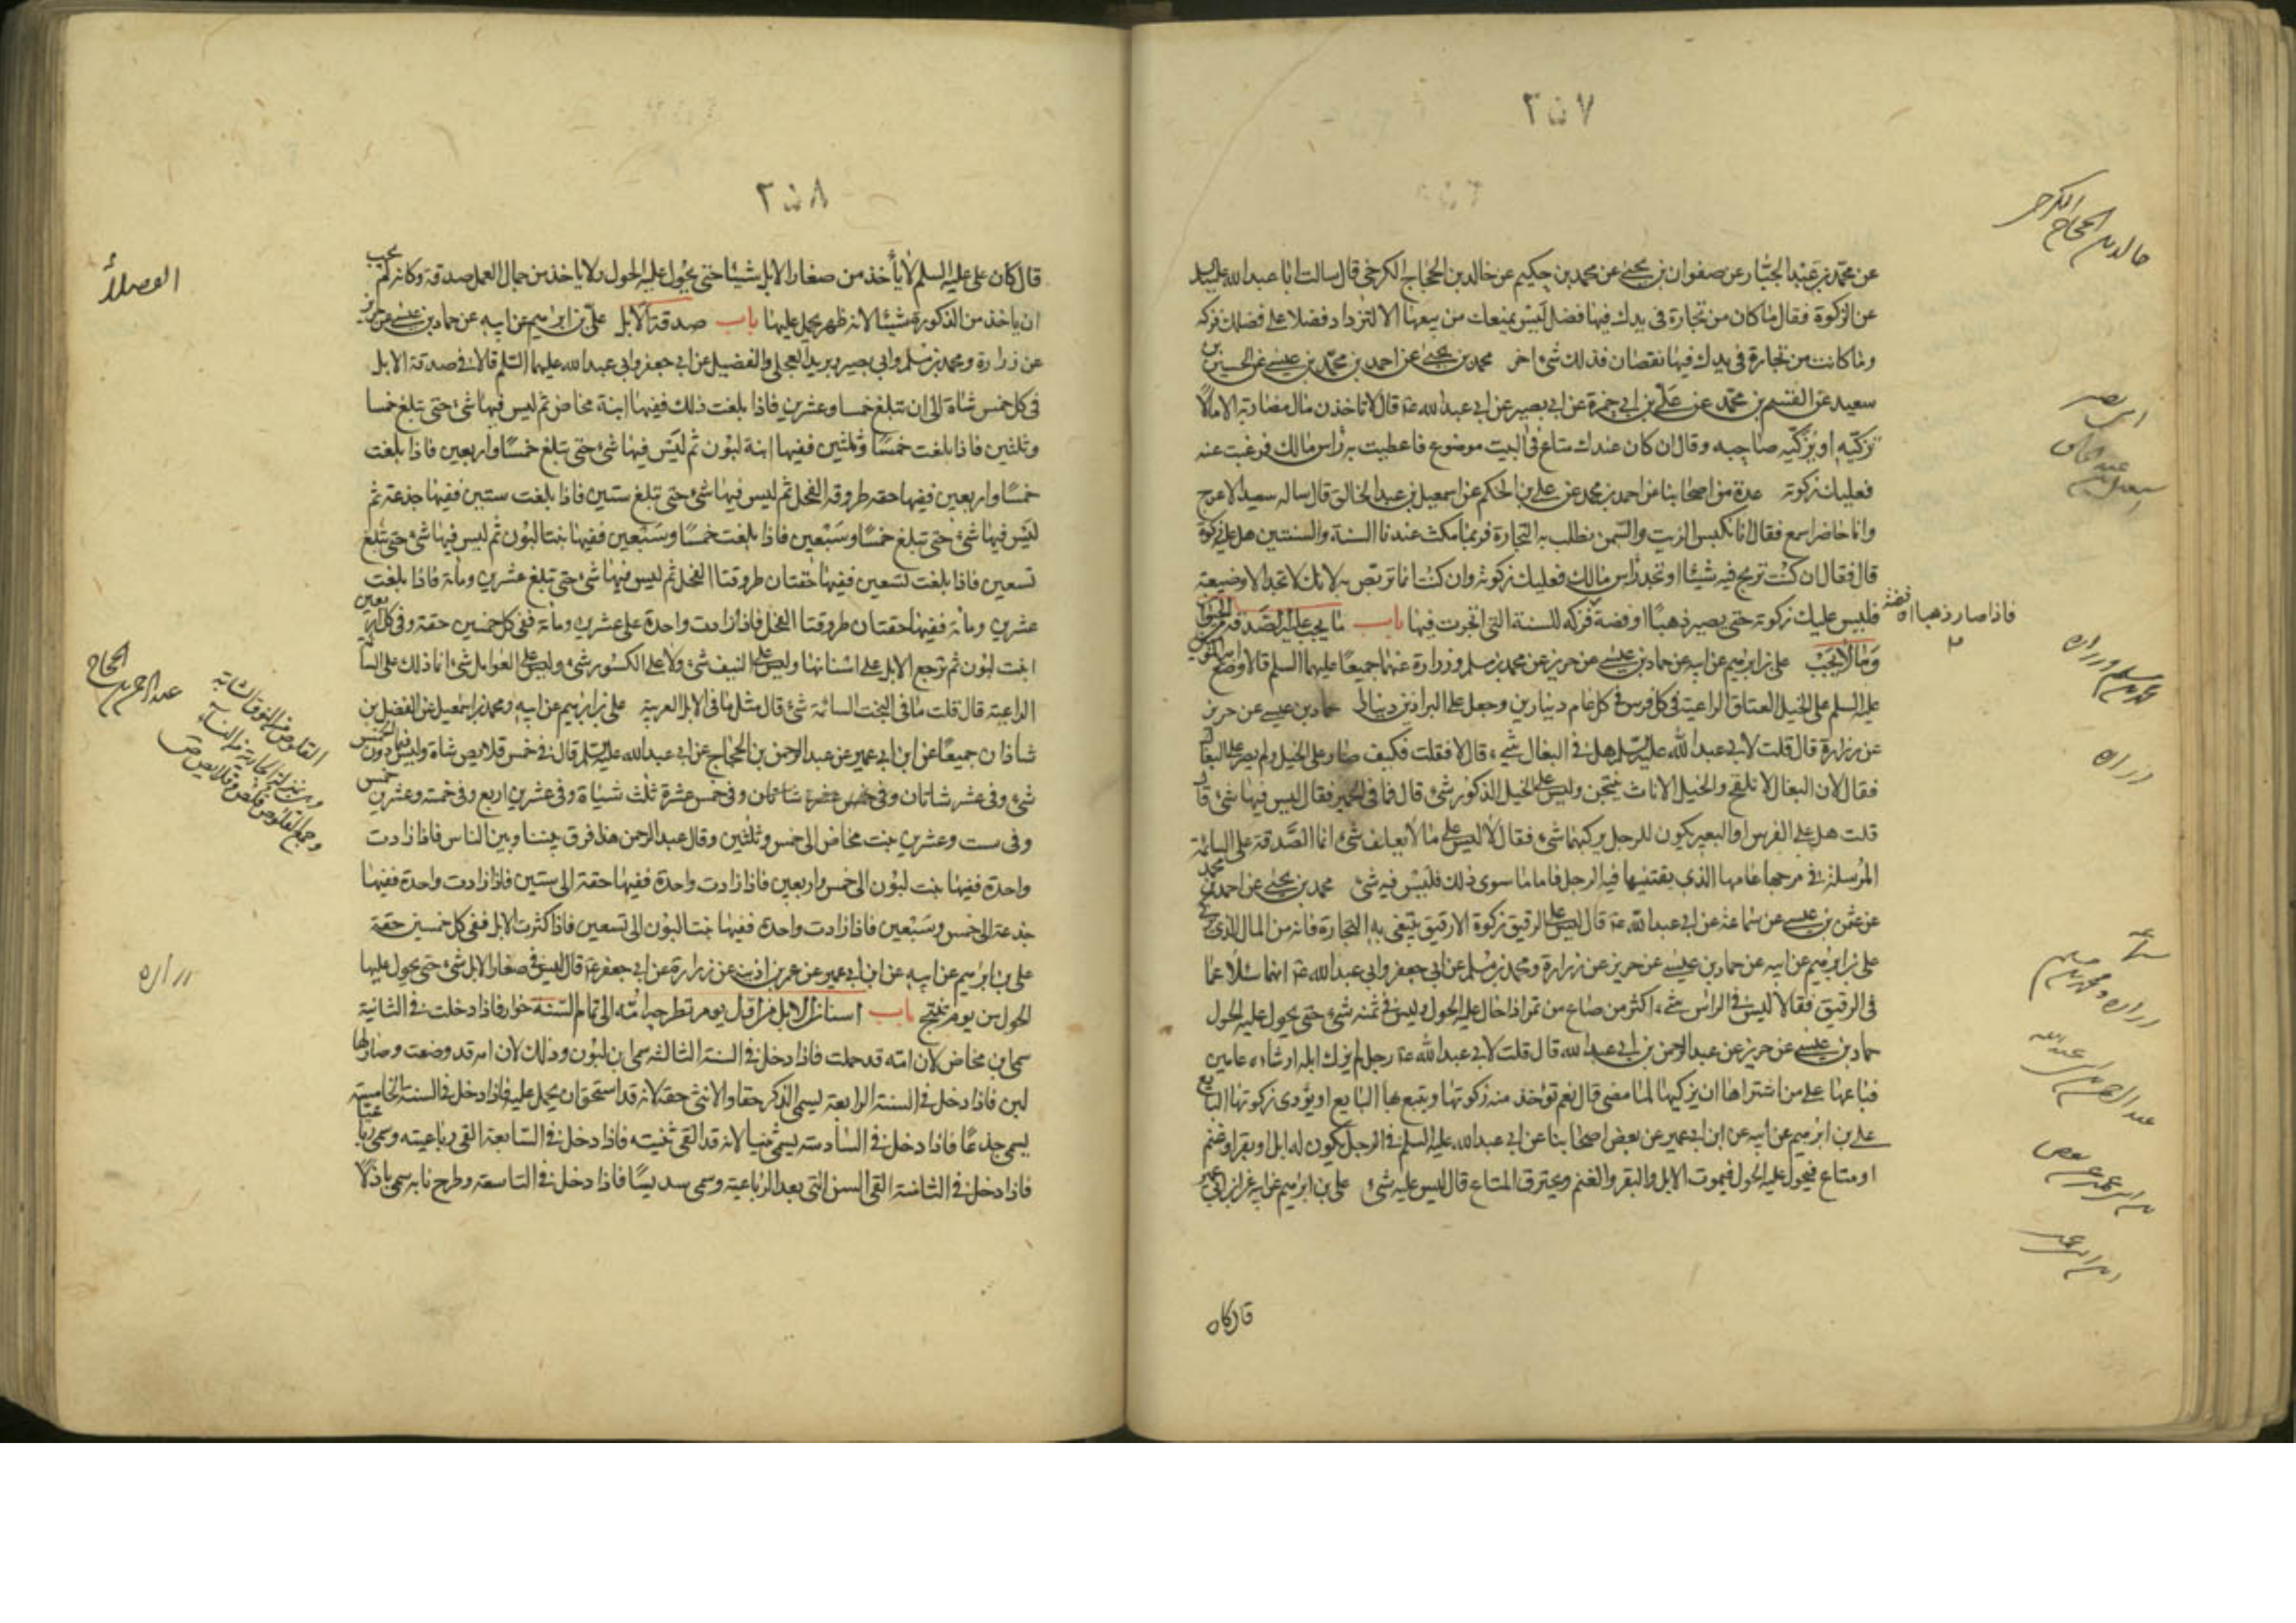 ٢٥٧
عن محمد بن عبد الجبار عن صفوان بن يحيى عن محمد بن حكيم عن خالد بن الحجاج الكرخي قال سالت ابا عبد الله عليه السلم
عن الزكوة فقال ما كان من تجارة في يدك فيها فضل ليس يمنعك من بيعها الا لتزداد فضلا على فضلك فزكه
وما كانت من تجارة في يدك فيها نقصان فذلك شيء اخر محمد بن يحيى عن احمد بن محمد بن عيسى عن الحسين بن
سعيد عن القسم بن محمد عن علي بن ابي حمزة عن ابي بصير عن ابي عبد الله ع قال لا تاخذن مال مضاربة الا مالا
تزكيه او يزكيه صاحبه وقال ان كان عندك متاع في البيت موضوع فاعطيت به راس مالك فرغبت عنه
فعليك زكوته عدة من اصحابنا عن احمد بن محمد عن علي بن الحكم عن اسمعيل بن عبد الخالق قال ساله سعيد الاعرج
وانا حاضر اسمع فقال انا نكبس الزيت والسمن نطلب به التجارة فربما مكث عندنا السنة والسنتين هل عليه زكوة
قال فقال ان كنت تربح فيه شيئا او تجد راس مالك فعليك زكوته وان كنت انما تربص به لانك لا تجد الا وضيعة
فليس عليك زكوته حتى يصير ذهبا او فضة فزكه للسنة التي اتجرت فيها باب ما يجب عليه الصدقة من الحيوان
وما لا يجب علي بن ابرهيم عن ابيه عن حماد بن عيسى عن حريز عن محمد بن مسلم وزرارة عنهما جميعا عليهما السلم قالا وضع امير المؤمنين
عليه السلم على الخيل العتاق الراعية في كل فرس في كل عام دينارين وجعل على البراذين دينارا حماد بن عيسى عن حريز
عن زرارة قال قلت لابي عبد الله عليه السلم هل في البغال شيء قال لا فقلت فكيف صار على الخيل ولم يصر على البغال
فقال لان البغال لا تلقح والخيل الاناث ينتجن وليس على الخيل الذكور شيء قال فما في الحمير فقال ليس فيها شيء قال
قلت هل على الفرس او البعير يكون للرجل يركبهما شيء فقال لا ليس على ما لا يعلف شيء انما الصدقة على السائمة
المرسلة في مرجها عامها الذي يقتنيها فيه الرجل فاما ما سوى ذلك فليس فيه شيء محمد بن يحيى عن احمد بن محمد
عن عثمن بن عيسى عن سماعة عن ابي عبد الله ع قال ليس على الرقيق زكوة الا رقيق يبتغى به التجارة فانه من المال الذي يزكى
علي بن ابرهيم عن ابيه عن حماد بن عيسى عن حريز عن زرارة ومحمد بن مسلم عن ابي جعفر وابي عبد الله ع انهما سئلا عما
في الرقيق فقالا ليس في الراس شيء اكثر من صاع من تمر اذا حال عليه الحول وليس في ثمنه شيء حتى يحول عليه الحول
حماد بن عيسى عن حريز عن عبد الرحمن بن ابي عبد الله قال قلت لابي عبد الله ع رجل لم يزك ابله او شاءه عامين
فباعها على من اشتراها ان يزكيها لما مضى قال نعم تؤخذ منه زكوتها ويتبع بها البايع او يؤدي زكوتها البايع
علي بن ابرهيم عن ابيه عن ابن ابي عمير عن بعض اصحابنا عن ابي عبد الله عليه السلم في الرجل يكون له ابل او بقر او غنم
او متاع فيحول عليه الحول فيموت الابل والبقر والغنم ويحترق المتاع قال ليس عليه شيء علي بن ابرهيم عن ابيه عن ابن ابي عمير
قال كان
خالد بن الحجاج الكرخي
ابي بصير
اسمعيل بن عبد الخالق
فاذا صار ذهبا او فضة
محمد بن مسلم وزراره
زراره
سماعه
زراره ومحمد بن مسلم
عبد الرحمن بن ابي عبد الله
ابن ابي عمير عن بعض
ابن ابي عمير
٢٥٨
قال كان علي عليه السلم لا يأخذ من صغار الابل شيئا حتى يحول عليه الحول ولا ياخذ من جمال العمل صدقة وكانه لم يجب
ان ياخذ من الذكورة شيئا لانه ظهر يحمل عليها باب صدقة الابل علي بن ابرهيم عن ابيه عن حماد بن عيسى عن حريز
عن زرارة ومحمد بن مسلم وابي بصير وبريد العجلي والفضيل عن ابي جعفر وابي عبد الله عليهما السلم قالا في صدقة الابل
في كل خمس شاة الى ان تبلغ خمسا وعشرين فاذا بلغت ذلك ففيها ابنة مخاض ثم ليس فيها شيء حتى تبلغ خمسا
وثلثين فاذا بلغت خمسا وثلثين ففيها ابنة لبون ثم ليس فيها شيء حتى تبلغ خمسا واربعين فاذا بلغت
خمسا واربعين ففيها حقه طروقه الفحل ثم ليس فيها شيء حتى تبلغ ستين فاذا بلغت ستين ففيها جذعة ثم
ليس فيها شيء حتى تبلغ خمسا وسبعين فاذا بلغت خمسا وسبعين ففيها بنتا لبون ثم ليس فيها شيء حتى تبلغ
تسعين فاذا بلغت تسعين ففيها حقتان طروقتا الفحل ثم ليس فيها شيء حتى تبلغ عشرين ومأة فاذا بلغت
عشرين ومأة ففيها حقتان طروقتا الفحل فاذا زادت واحدة على عشرين ومأة ففي كل خمسين حقة وفي كل اربعين
ابنت لبون ثم ترجع الابل على اسنانها وليس على النيف شيء ولا على الكسور شيء وليس على العوامل شيء انما ذلك على السائمة
الراعية قال قلت ما في البخت السائمة شيء قال مثل ما في الابل العربية علي بن ابرهيم عن ابيه ومحمد بن اسمعيل عن الفضل بن
شاذان جميعا عن ابن ابي عمير عن عبد الرحمن بن الحجاج عن ابي عبد الله عليه السلم قال في خمس قلايص شاة وليس فيما دون الخمس
شيء وفي عشر شاتان وفي خمس عشرة ثلث شياة وفي عشرين اربع وفي خمسة وعشرين خمس
وفي ست وعشرين بنت مخاض الى خمس وثلثين وقال عبد الرحمن هذا فرق بيننا وبين الناس فاذا زادت
واحدة ففيها بنت لبون الى خمس واربعين فاذا زادت واحدة ففيها حقة الى ستين فاذا زادت واحدة ففيها
جذعة الى خمس وسبعين فاذا زادت واحدة ففيها بنتا لبون الى تسعين فاذا كثرت الابل ففي كل خمسين حقة
علي بن ابرهيم عن ابيه عن ابن ابي عمير عن عمر بن اذينة عن زرارة عن ابي جعفر ع قال ليس في صغار الابل شيء حتى يحول عليها
الحول من يوم تنتج باب اسنان الابل من اول يوم تطرحه امه الى تمام السنة حوار فاذا دخلت في الثانية
سمي ابن مخاض لان امه قد حملت فاذا دخل في السنة الثالثه سمي ابن لبون وذلك لان امه قد وضعت وصار لها
لبن فاذا دخل في السنة الرابعة يسمى الذكر حقا والانثى حقة لانه قد استحق ان يحمل عليه فاذا دخل في السنة الخامسة
يسمى جذعا فاذا دخل في السادسة يسمى ثنيا لانه قد القى ثنيته فاذا دخل في السابعة القى رباعيته وسمي رباعيا
فاذا دخل في الثامنة القى السن التي بعد الرباعية وسمي سديسا فاذا دخل في التاسعة وطرح نابه سمي باذلا
عبد الرحمن بن الحجاج
القلوص من النوق الشابة
وهي بمنزلة الجارية من النساء
وجمع القلوص قلص وقلايص ص
زراره